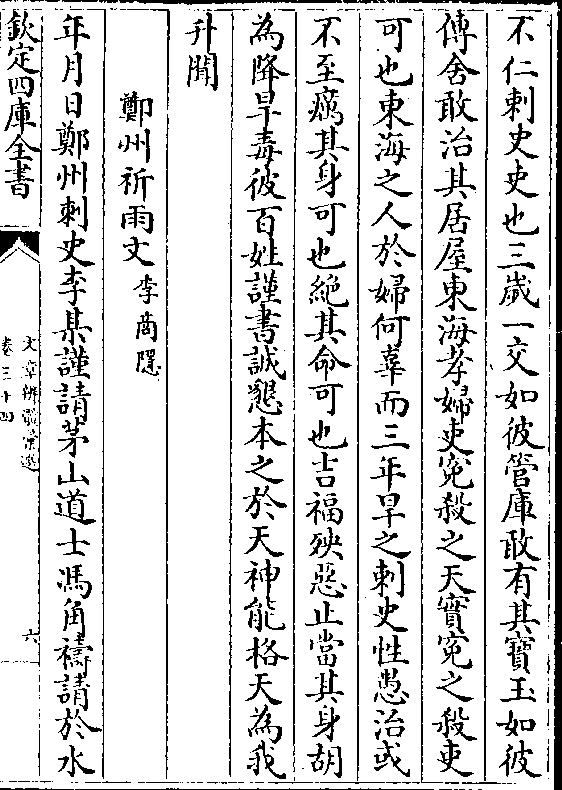 不仁刺史吏也三嵗一交如彼管庫敢有其寳玉如彼
傳舍敢治其居屋東海孝婦吏寃殺之天實寃之殺吏
可也東海之人於婦何辜而三年旱之刺史性愚治或
不至癘其身可也絶其命可也吉福殃惡止當其身胡
為降旱毒彼百姓謹書誠懇本之於天神能格天為我
升聞
鄭州祈雨文李商隱
年月日鄭州刺史李某謹請茅山道士馮角禱請於水
欽定四庫全書
文章辨體彚選
卷三十四
六